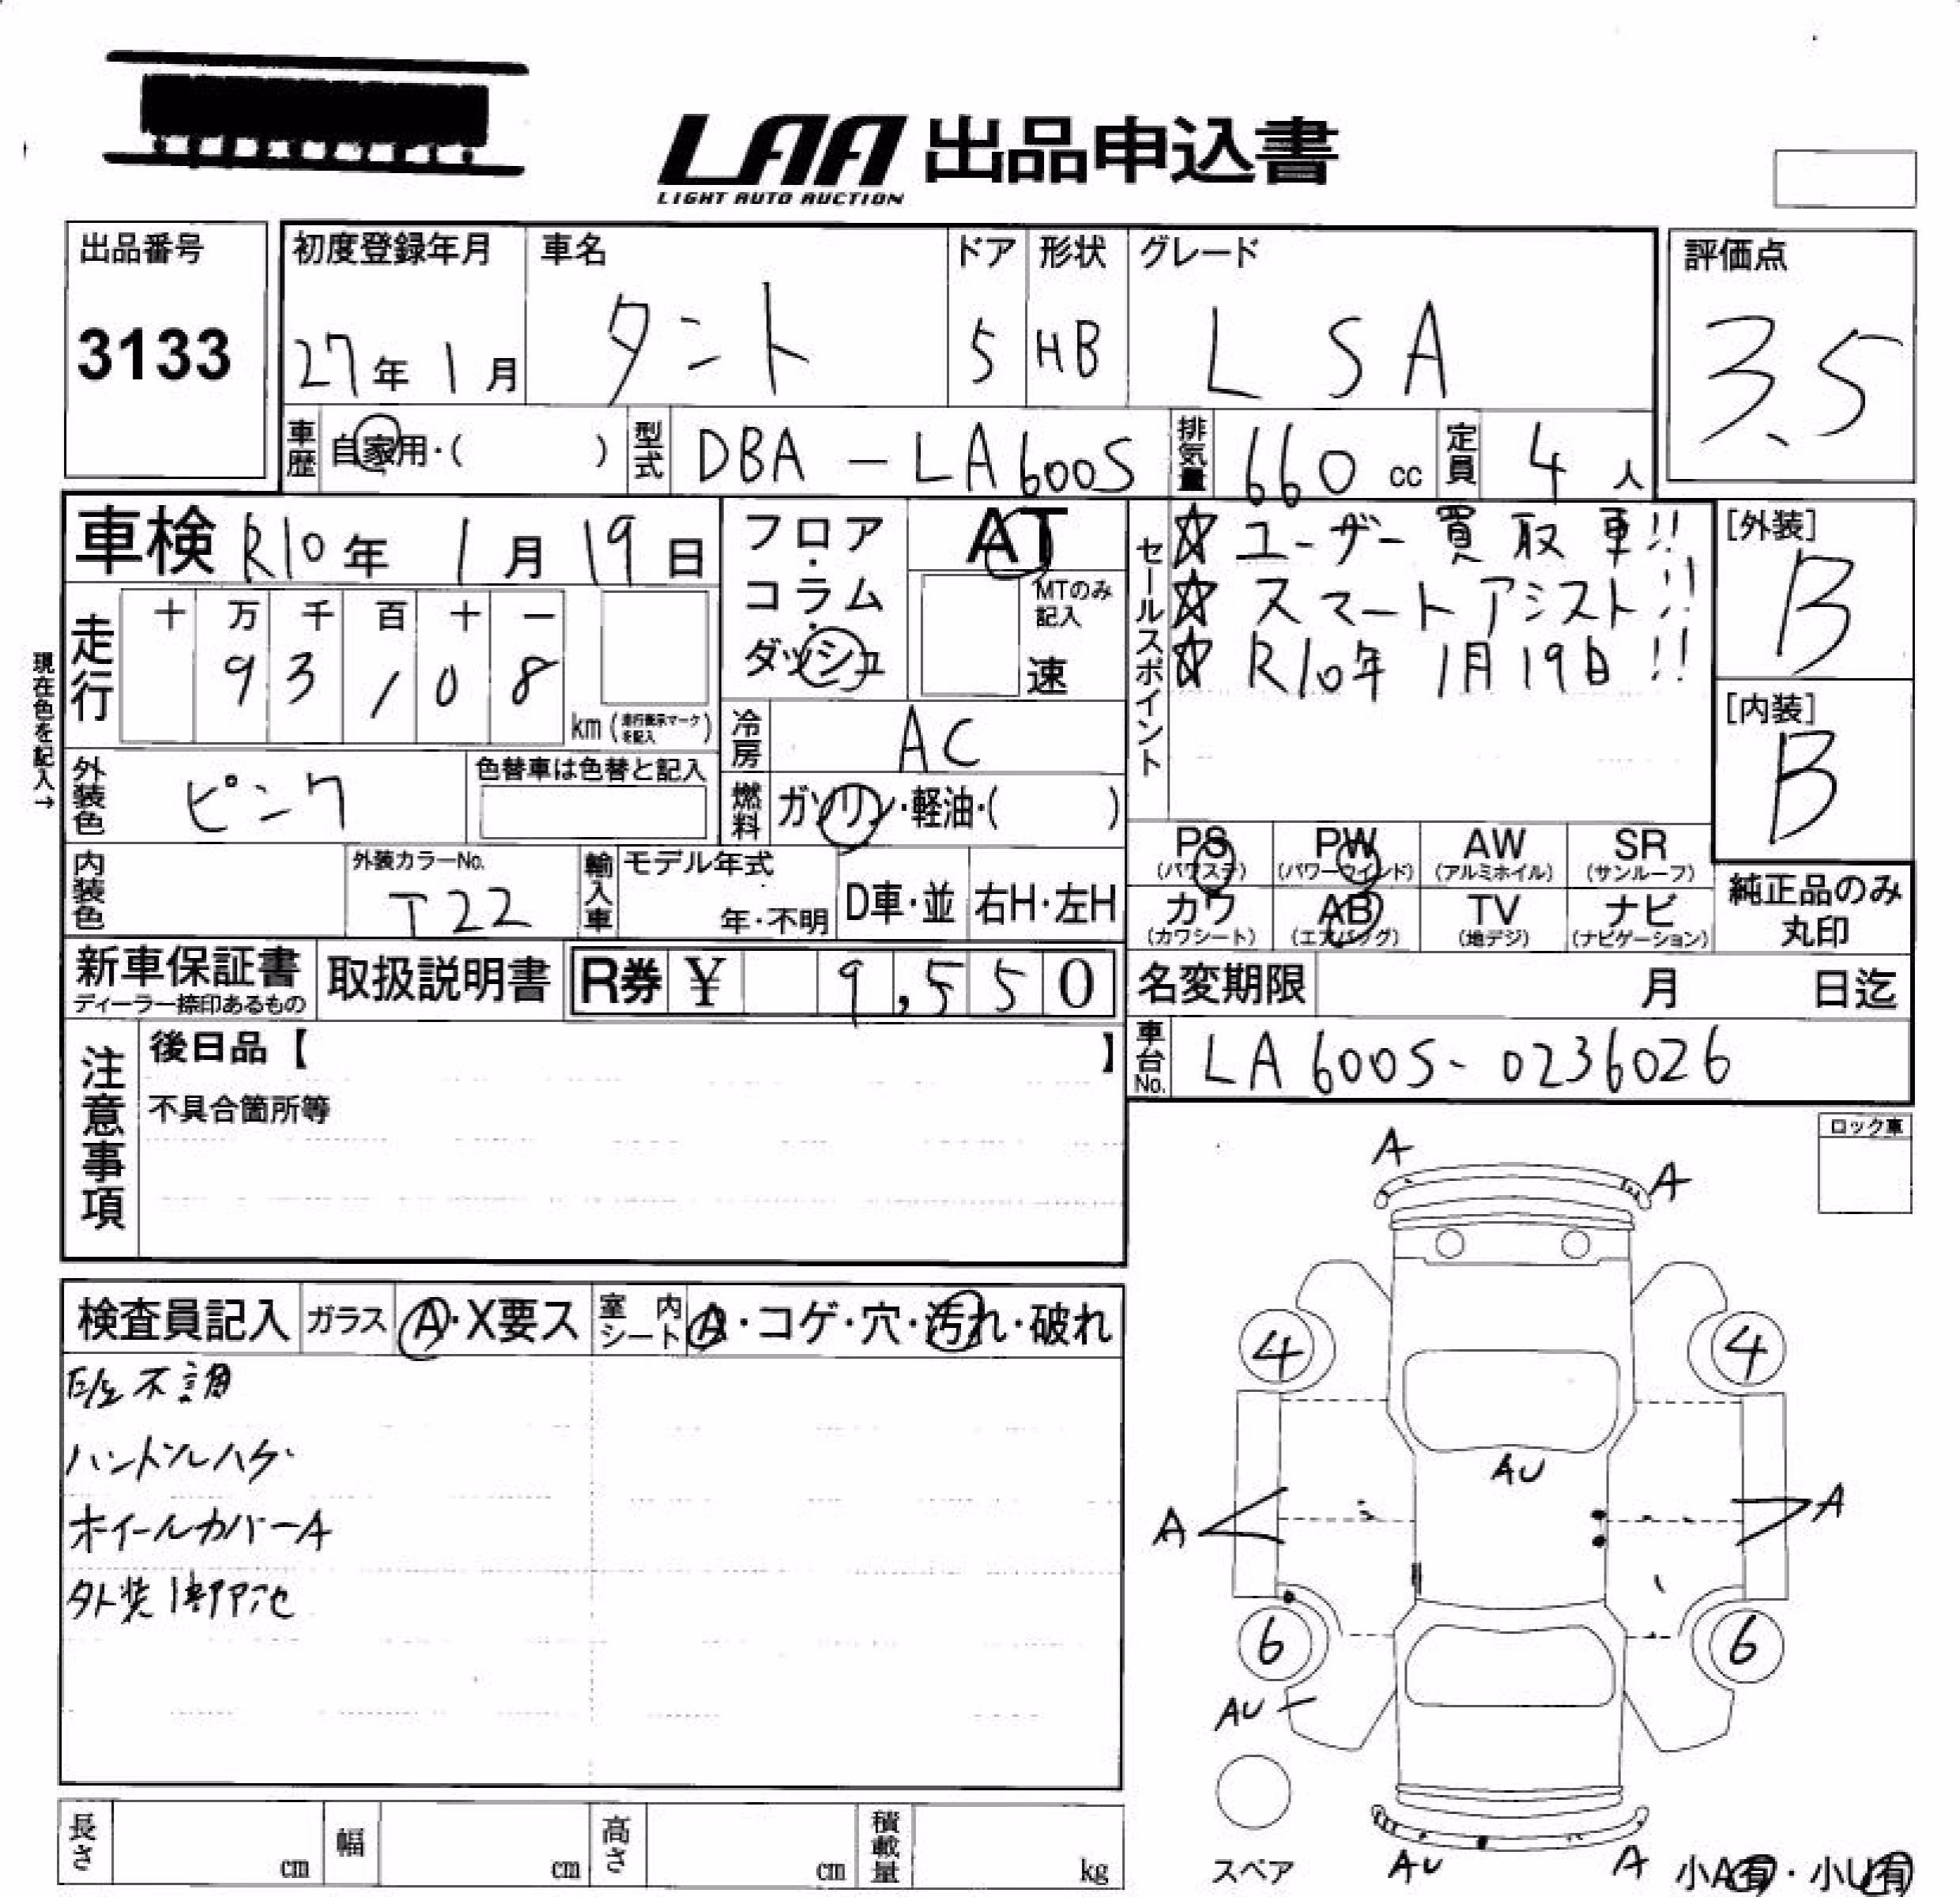 LAA 出品申込書
LIGHT AUTO AUCTION
出品番号
3133
初度登録年月
27年1月
車名
タント
ドア
5
形状
HB
グレード
L SA
評価点
3.5
車歴 自家用・( )
型式 DBA-LA600S
排気量 660 cc
定員 4人
車検 R10年1月19日
フロア・コラム・ダッシュ
AT
MTのみ記入
速
セールスポイント
☆ユーザー買取車!!
☆スマートアシスト!!
☆R10年1月19日!!
[外装]
B
[内装]
B
現在色を記入→
走行
十 万 千 百 十 一
9 3 1 0 8
km
冷房 AC
外装色 ピンク
色替車は色替と記入
燃料 ガソリン・軽油・( )
内装色
外装カラーNo.
T22
輸入車
モデル年式
年・不明
D車・並
右H・左H
PS
(パワステ)
PW
(パワーウインド)
AW
(アルミホイル)
SR
(サンルーフ)
カワ
(カワシート)
AB
(エアバッグ)
TV
(地デジ)
ナビ
(ナビゲーション)
純正品のみ
丸印
新車保証書
ディーラー捺印あるもの
取扱説明書
R券 ¥ 9,550
名変期限 月 日迄
車台No. LA600S-0236026
注意事項
後日品【 】
不具合箇所等
ロック車
検査員記入
ガラス A・X要ス
室内シート A・コゲ・穴・汚れ・破れ
不調
ハンドルハゲ
ホイールカバーA
外装1部凹
A
A
4
4
AU
A
A
6
6
AU
スペア
AU
A
小A有・小U有
長さ cm
幅 cm
高さ cm
積載量 kg